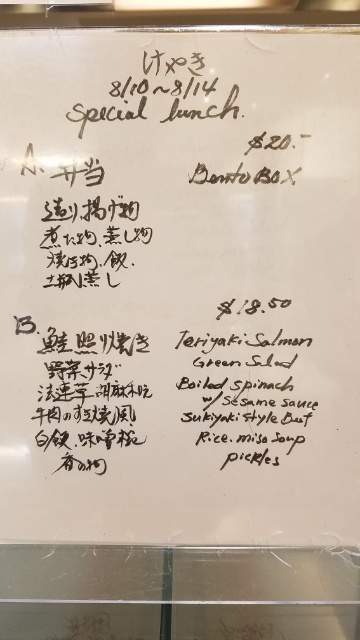 けやき
8/10～8/14
Special lunch.
$20.-
A. 弁当 Bento BOX
造り、揚げ物
煮た物、蒸し物
焼き物、飯、
土瓶蒸し
$18.50
B. 鮭照り焼き Teriyaki Salmon
野菜サラダ Green Salad
法連草胡麻和え Boiled Spinach
w/ Sesame sauce
牛肉のすき焼風 Sukiyaki Style Beef
白飯、味噌椀 Rice. miso soup
香の物 pickles